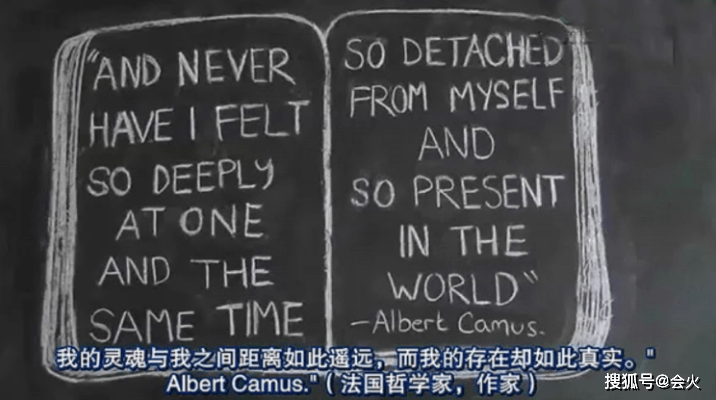 “AND NEVER
HAVE I FELT
SO DEEPLY
AT ONE
AND THE
SAME TIME
SO DETACHED
FROM MYSELF
AND
SO PRESENT
IN THE
WORLD“
—Albert Camus.
我的灵魂与我之间距离如此遥远，而我的存在却如此真实。"
Albert Camus."（法国哲学家，作家）
搜狐号@会火